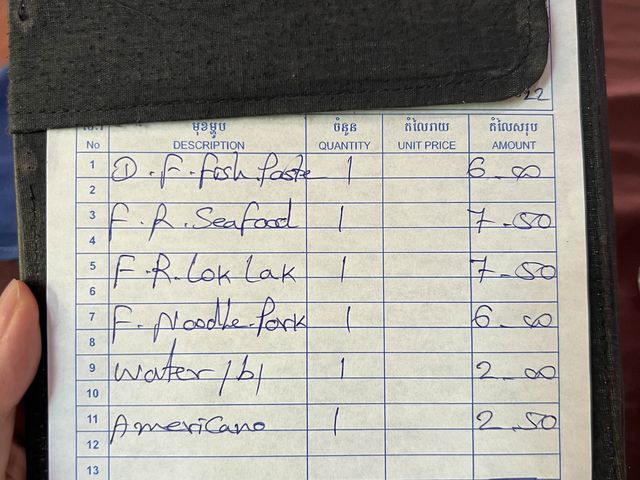 22
ល.រ មុខម្ហូប ចំនួន តំលៃរាយ តំលៃសរុប
No DESCRIPTION QUANTITY UNIT PRICE AMOUNT
1 D.F.Fish Paste 1 6-00
2
3 F.R.Seafood 1 7-50
4
5 F.R.Lok Lak 1 7-50
6
7 F.Noodle.Pork 1 6-00
8
9 Water/b/ 1 2-00
10
11 Americano 1 2.50
12
13